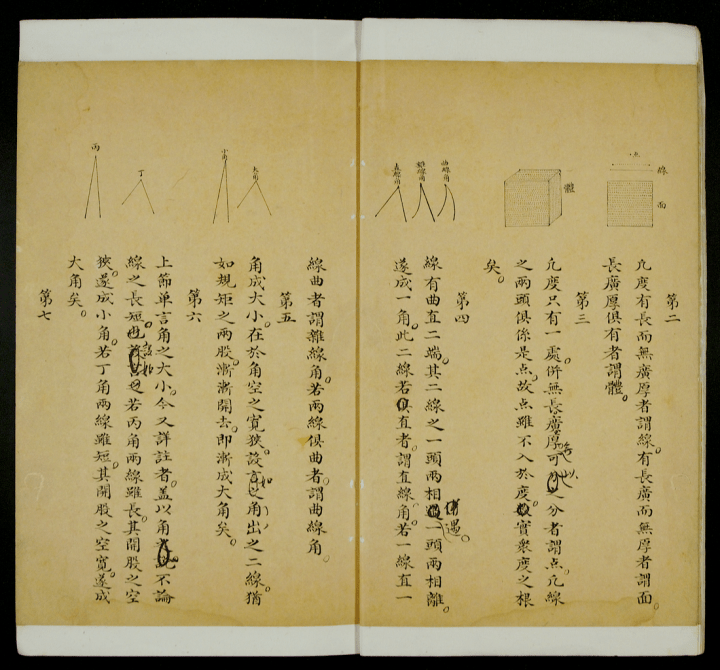 點
線
面
第二
凢度有長而無廣厚者謂線。有長廣而無厚者謂面。
長廣厚俱有者謂體。
體
第三
凢度只有一處。併無長廣厚可以分者謂点。凢線
之兩頭俱係是点。故点雖不入於度。實衆度之根
矣。
第四
曲線角
雜線角
直線角
線有曲直二端。其二線之一頭兩相遇。一頭兩相離。
遂成一角。此二線若俱直者。謂直線角。若一線直一
線曲者謂雜線角。若兩線俱曲者。謂曲線角。
第五
大角
小角
角成大小。在於角空之寬狹。設角出之二線猶
如規矩之兩股。漸漸開去。即漸成大角矣。
第六
丁
丙
上節单言角之大小。今又詳註者。盖以角不論
線之長短。若丙角兩線雖長。其開股之空
狹。遂成小角。若丁角兩線雖短。其開股之空寬。遂成
大角矣。
第七